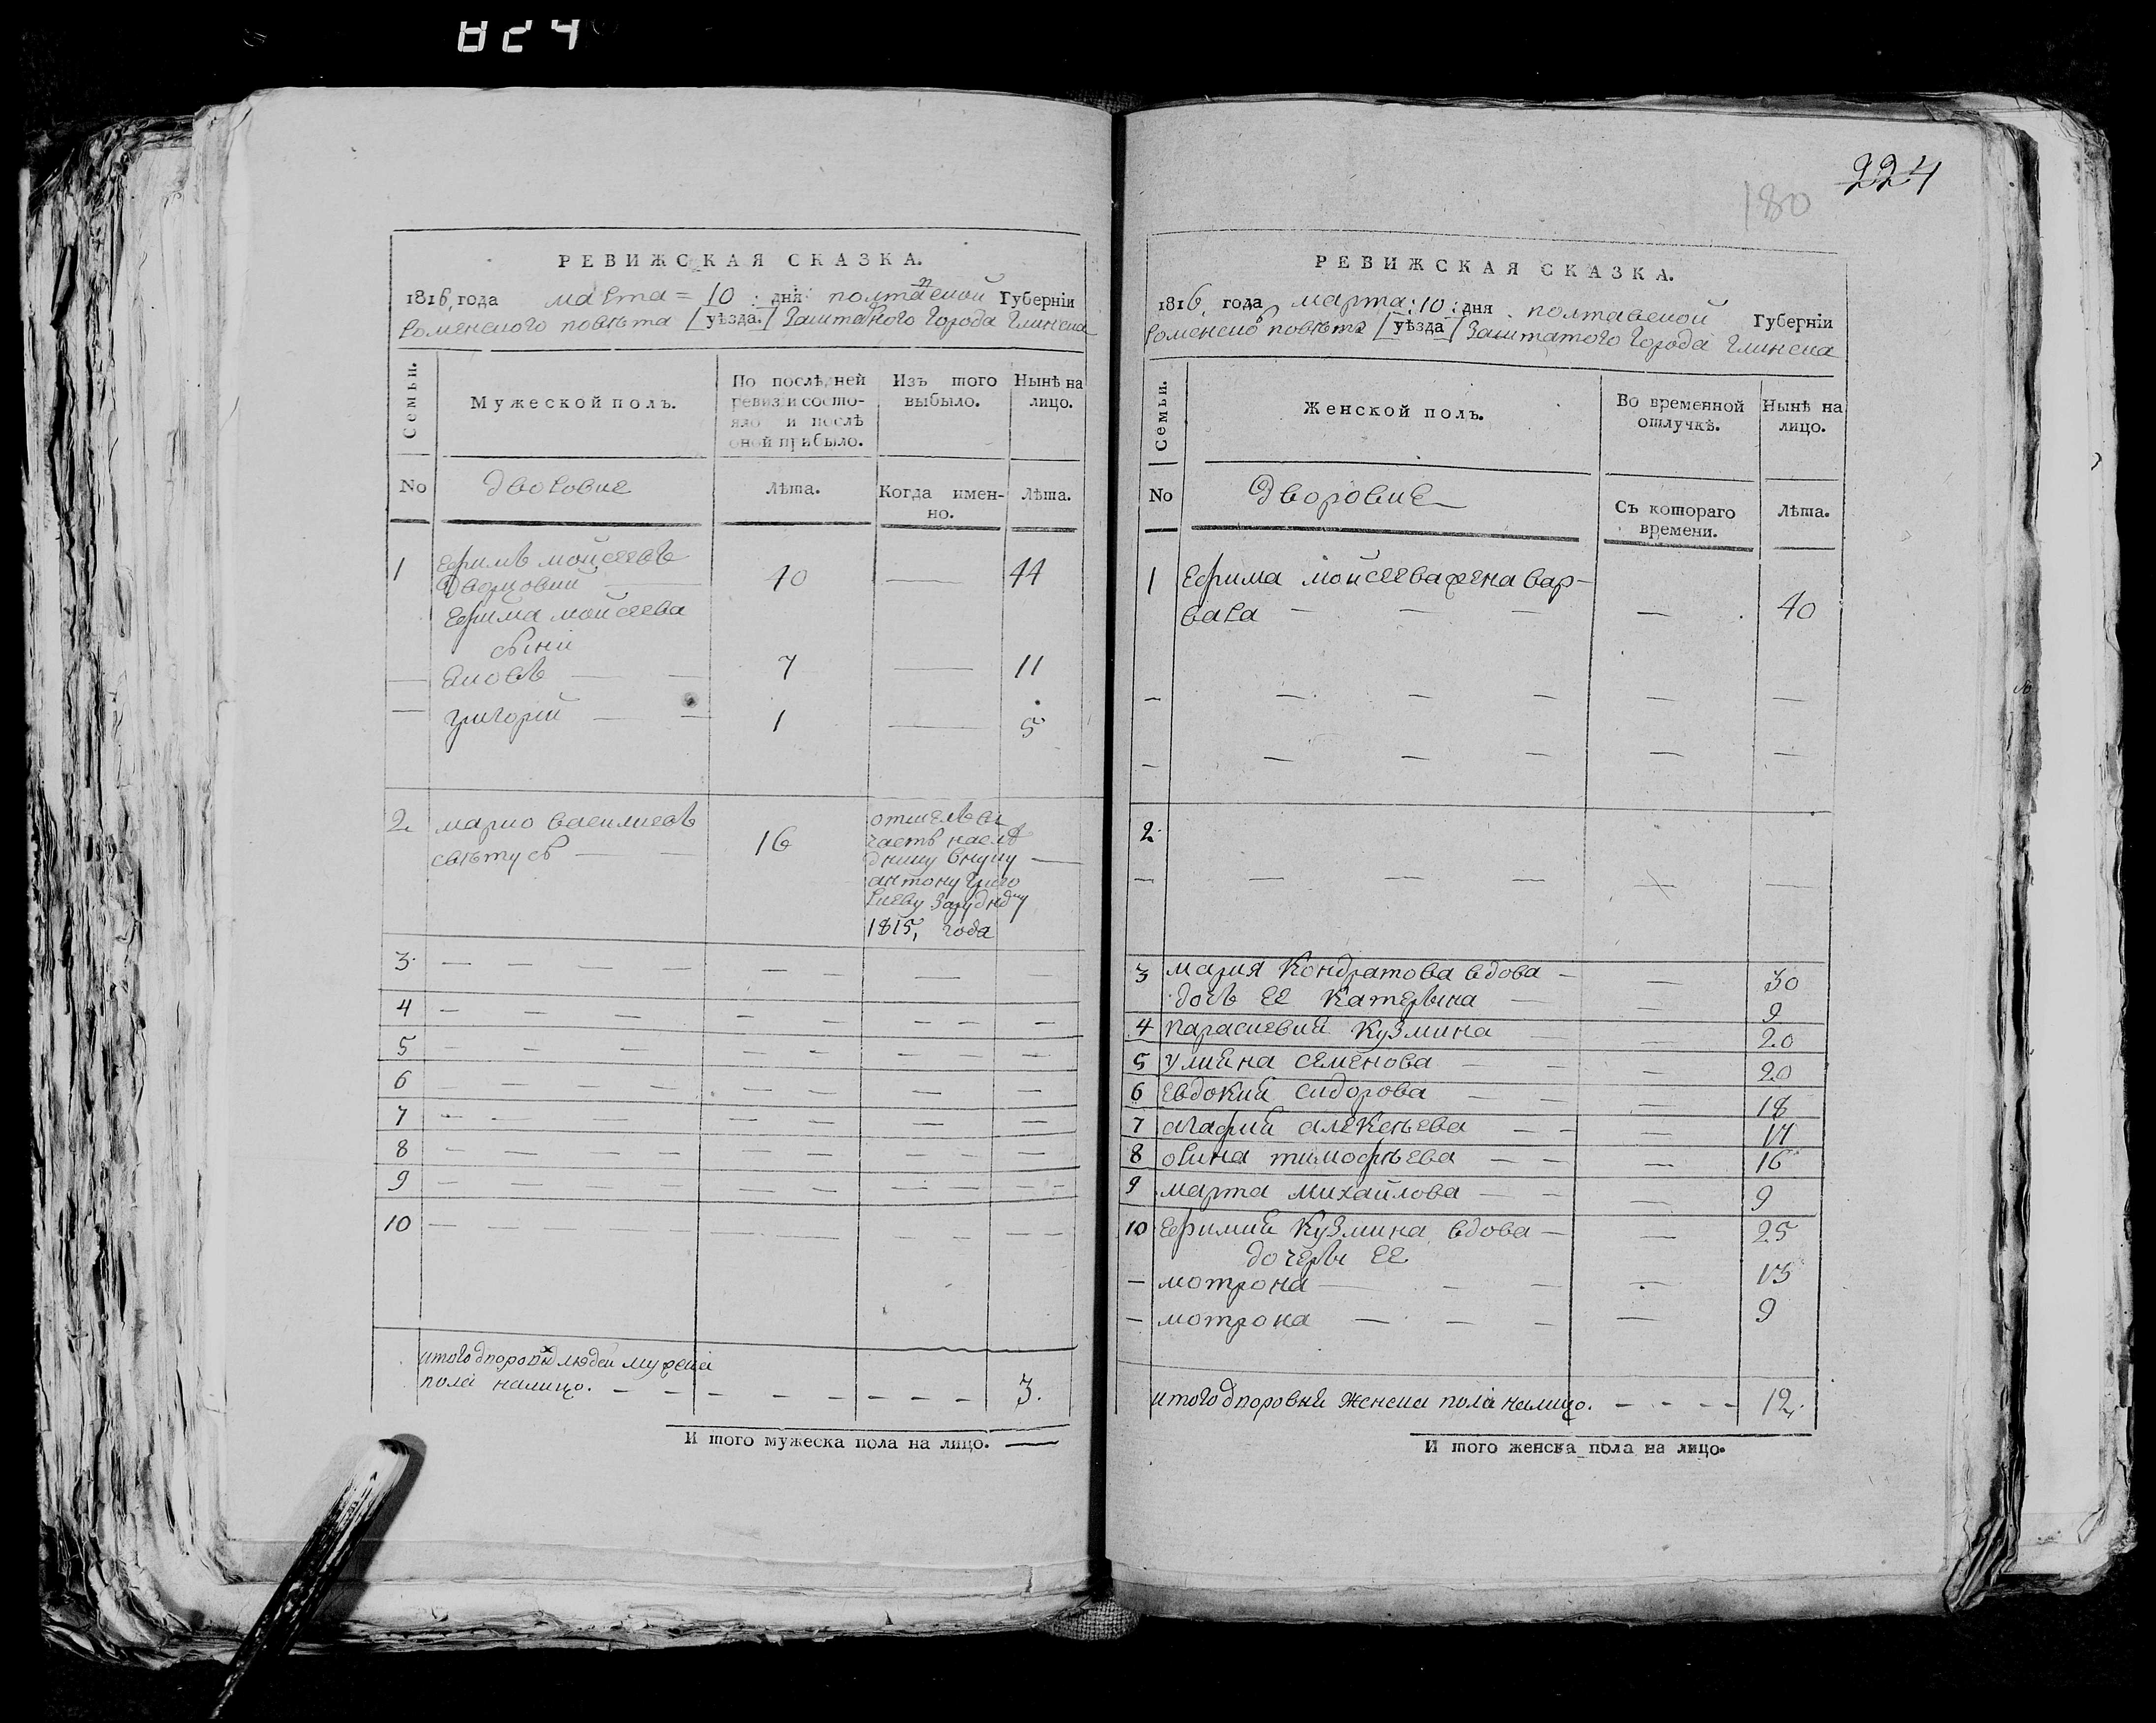 824
РЕВИЖСКАЯ СКАЗКА.
1816, года марта = 10 : дня полтавской Губерніи
Роменского повѣта [уѣзда.] Заштатного города Глинска
Семьи.
Мужеской полъ.
По послѣдней ревизіи состояло и послѣ оной прибыло.
Изъ того выбыло.
Нынѣ на лицо.
No
дворовие
лѣта.
Когда именно.
лѣта.
1 Ефимъ мойсеевъ
Дворцовий — 40 — 44
Ефима мойсеева
сыни
— Яковъ — — 7 — 11
— григорий — — 1 — 5
2 марко василиевъ
свѣтусъ — — 16
отшелъ въ
часть наслѣ
днику внуку —
антону григо
риеву
1815, года
3 — — — — — — —
4 — — — — — — — — —
5 — — — — — — — — —
6 — — — — — — — — —
7 — — — — — — — — —
8 — — — — — — — — —
9 — — — — — — — — — —
10 — — — — — — — — — —
итого дворовых людей мужеска
пола налицо. — — — — — — — — 3.
И того мужеска пола на лицо. —
224
180
РЕВИЖСКАЯ СКАЗКА.
1816, года марта : 10 : дня полтавской Губерніи
Роменского повѣта [уѣзда] Заштатого города Глинска
Семьи.
Женской полъ.
Во временной отлучкѣ.
Нынѣ на лицо.
No
Дворовие
Съ котораго времени.
лѣта.
1 Ефима мойсеева жена вар-
вара — — — — 40
— — — — — —
— — — — — —
2
— — — — —
3 мария Кондратова вдова — — 30
дочь ее Катерина — — 9
4 параскевий Кузмина — — 20
5 улияна семенова — — — 20
6 Евдокий сидорова — — — 18
7 агафий алексѣева — — — 17
8 орина тимофѣева — — — 16
9 марта михайлова — — — 9
10 Ефимий Кузмина вдова — — 25
дочеры ее
— мотрона — — — — 13
— мотрона — — — — 9
итого дворовий женска пола налицо. — — — — 12.
И того женска пола на лицо.